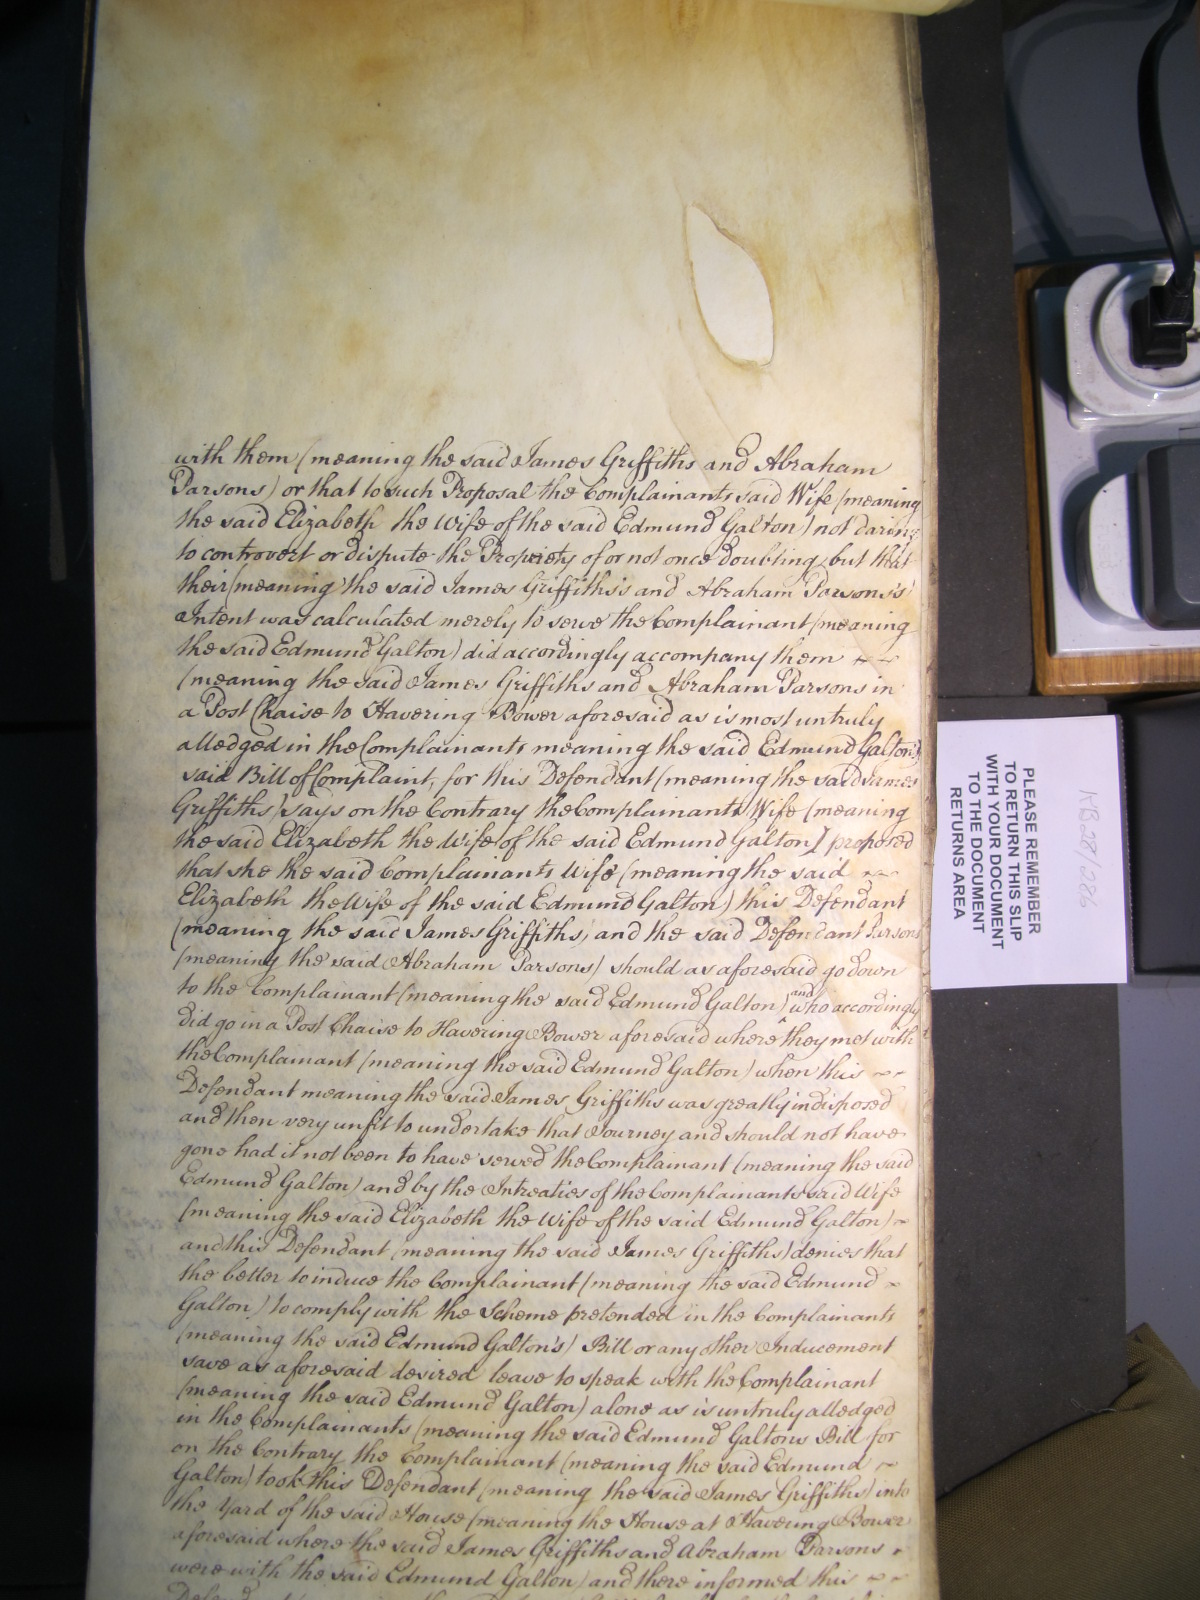 with them (meaning the said James Griffiths and Abraham
Parsons) or that to such Proposal the Complainants said Wife (meaning
the said Elizabeth the Wife of the said Edmund Galton) not daring
to controvert or dispute the Propriety of or not once doubting but that
their (meaning the said James Griffiths's and Abraham Parsons's)
Intent was calculated merely to serve the Complainant (meaning
the said Edmund Galton) did accordingly accompany them
(meaning the said James Griffiths and Abraham Parsons in
a Post Chaise to Havering Bower aforesaid as is most untruly
alledged in the Complainants meaning the said Edmund Galton's)
said Bill of Complaint, for this Defendant (meaning the said James
Griffiths) says on the Contrary the Complainants Wife (meaning
the said Elizabeth the Wife of the said Edmund Galton) proposed
that she the said Complainants Wife (meaning the said
Elizabeth the Wife of the said Edmund Galton) this Defendant
(meaning the said James Griffiths) and the said Defendant Parsons
(meaning the said Abraham Parsons) should as aforesaid go down
to the Complainant (meaning the said Edmund Galton) who accordingly
did go in a Post Chaise to Havering Bower aforesaid where and they met with
the Complainant (meaning the said Edmund Galton) when this
Defendant meaning the said James Griffiths was greatly indisposed
and then very unfit to undertake that Journey and should not have
gone had it not been to have served the Complainant (meaning the said
Edmund Galton) and by the Intreaties of the Complainants said Wife
(meaning the said Elizabeth the Wife of the said Edmund Galton)
and this Defendant (meaning the said James Griffiths) denies that
the better to induce the Complainant (meaning the said Edmund
Galton) to comply with the Scheme pretended in the Complainants
(meaning the said Edmund Galton's) Bill or any other Inducement
save as aforesaid desired leave to speak with the Complainant
(meaning the said Edmund Galton) alone as is untruly alledged
in the Complainants (meaning the said Edmund Galtons Bill for
on the Contrary the Complainant (meaning the said Edmund
Galton) took this Defendant (meaning the said James Griffiths) into
the Yard of the said House (meaning the House at Havering Bower
aforesaid where the said James Griffiths and Abraham Parsons
were with the said Edmund Galton) and there informed this
PLEASE REMEMBER
TO RETURN THIS SLIP
WITH YOUR DOCUMENT
TO THE DOCUMENT
RETURNS AREA
KB 28/286